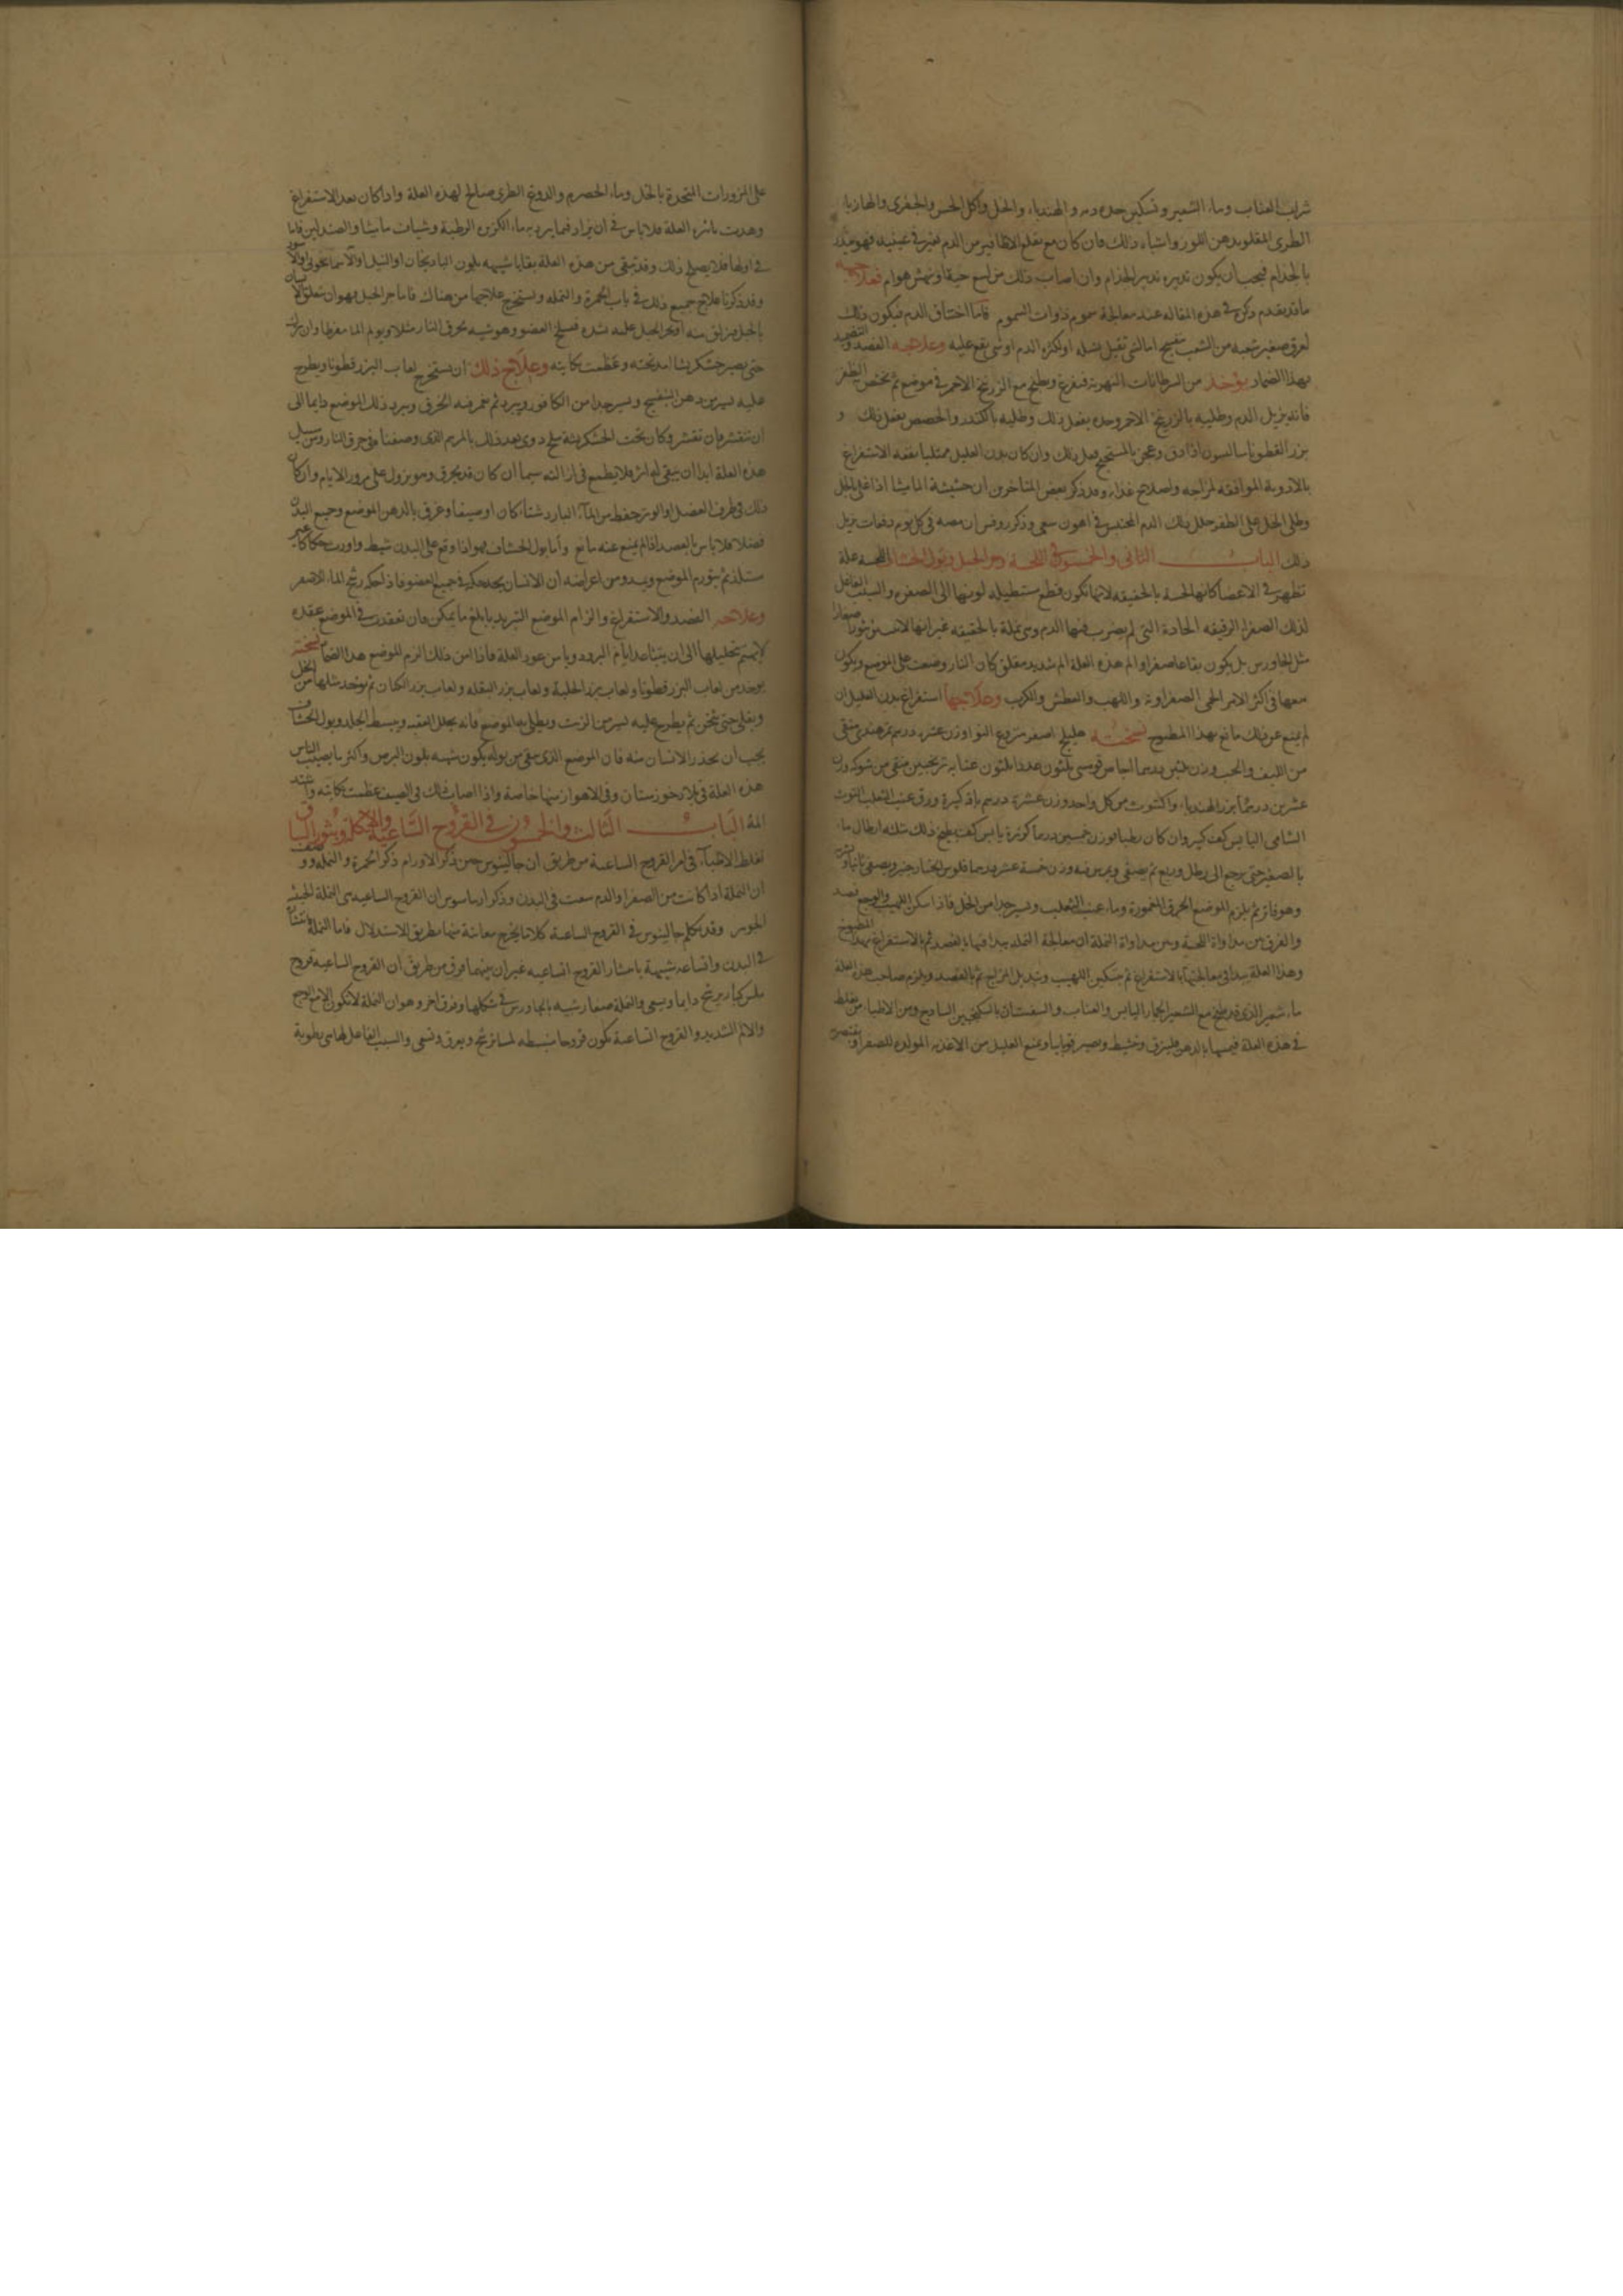 شراب العناب وماء الشعير وتسكين حدة دمه والهندباء والخل واكل الخس والجفرى والهازباء
الطرى المقلو بدهن اللوز واشباه ذلك فان كان مع تقلع الاظافير من الدم تغير فى عينيه فهو منذر
بالجذام فيجب ان يكون تدبيره تدبير الجذام وان اصاب ذلك من لسع حية او نهش هوام فعلاجه
ما قد تقدم ذكره فى هذه المقاله عند معالجة سموم ذوات السموم فاما اختناق الدم فيكون ذلك
لعرق صغير شعبه من الشعب تنفسخ اما لشى ثقيل يشيله او لكثرة الدم او شى يقع عليه وعلاجه الفصد والتضميد
بهذا الضماد يؤخذ من السرطانات النهرية فتفرغ ويطبخ مع الزرنيخ الاحمر فى موضع ثم يختص الظفر
فانه يزيل الدم وطليه بالزرنيخ الاحمر وحده يفعل ذلك وطليه بالكندر والحضض يفعل ذلك و
بزر القطونا اذا دق وعجن فعل ذلك وان كان بدن العليل ممتليا نفعه الاستفراغ
بالادوية الموافقه لمزاجه واصلاح غذاءه وقد ذكر بعض المتاخرين ان حشيشة الماميثا اذا غلى بالخل
وطلى الخل على الظفر حلل ذلك الدم المحتبس فى اهون سعى وذكر روفس ان مصه فى كل يوم دفعات يزيل
ذلك الباب الثانى والخمسون فى اللحسة وحز الحبل وبول الخشاف اللحسة علة
تظهر فى الاعضا كانها لحسة بالحقيقه لانها تكون قطع مستطيله لونها الى الصفره والسبب الفاعل
لذلك الصفراء الرقيقه الحادة التى لم يضرب فيها الدم وهى نملة بالحقيقه غير انها لا تنبثر بثورا صغارا
مثل الجاورس بل يكون بقاعا صفراء والم هذه العلة الم شديد مقلق كان النار وضعت على الموضع ويكون
معها فى اكثر الامر الحمى الصفراوية واللهب والعطش والكرب وعلاجها استفراغ بدن العليل ان
لم يمنع عن ذلك مانع بهذا المطبوخ نسخته هليلج اصفر منزوع النوا وزن عشرة دراهم تمر هندى منقى
من الليف والحب وزن ثلثين درهما اجاص قومسى ثلثون عددا ثلثون عنابه ترنجبين منقى من شوكه وزن
عشرين درهما بزر الهندباء واكشوث من كل واحد وزن عشرة دراهم باقة كبيرة ورق عنب الثعلب التوث
الشامى اليابس كف كبير وان كان رطبا فوزن خمسين درهما كزبرة يابس كف يطبخ ذلك بثلثه ارطال ماء
بالصغير حتى يرجع الى رطل وربع ثم يصفى ويمرس فيه وزن خمسة عشر درهما فلوس الخيار شنبر ويصفى ثانيا ويشربه
وهو فاتر ثم يلزم الموضع الخرق المغمورة وماء عنب الثعلب ويسير جدا من الخل فاذا سكن اللهيب والوجع فصد
والفرق بين مداواة اللحسة وبين مداواة النملة ان معالجة النملة يبدا فيها بالفصد ثم بالاستفراغ بهذا المطبوخ
وهذا العلة يبدا فى معالجتها بالاستفراغ ثم بتسكين اللهيب وتبديل المزاج ثم بالفصد ويلزم صاحب هذه العلة
ماء شعير الذى قد طبخ مع الشعير الخيار اليابس والعناب والسفستان بالسكنجبين الساذج ومن الاطباء من يغلط
فى هذه العلة فيمسها بالدهن فيزق وتنشيط ويصير قوبايا ويمنع العليل من الاغذيه المولده للصفراء ويقتصر به
على المزورات المتخذة بالخل وماء الحصرم والدوغ الطرى صالح لهذه العلة واذا كان بعد الاستفراغ
وهدت نائرة العلة فلا باس فى ان يزاد فيما يبرد به ماء الكزبرة الرطبة وشيات ماميثا والصندلين فاما
فى اولها فلا يصلح ذلك وقد تبقى من هذه العلة بقايا شبيهه بلون الباذنجان او النيل او الاسمانجونى
وقد ذكرنا علاج جميع ذلك فى باب الحمرة والنمله ويستخرج علاجها من هناك فاما حز الحبل فهو ان يتعلق الانسان
بالحبل فيزلق منه او يجر الحبل عليه بشدة فيسلخ العضو وهو شبيه بحرق النار مثلا ويولم الما مفرطا وان ترك
حتى يصير خشكريشا امد تحته وعظمت نكايته وعلاج ذلك ان يستخرج لعاب البزر قطونا ويطرح
عليه يسير من دهن البنفسج ويسير جدا من الكافور ويبرد ثم تغمر فيه الخرق ويبرد ذلك الموضع دايما الى
ان تتقشر فان تقشر وكان تحت الخشكريشة سلخ دوى بعد ذلك بالمرهم الذى وصفنا فى حرق النار ومن سبيل
هذه العلة ابدا ان يبقى لها اثر فلا يطمع فى ازالته سيما ان كان قد يحرق وهو يزول على مرور الايام وان كان
ذلك فى طرف العضل او الوتر حفظ من الماء البارد شتاء كان او صيفا وغرق بالدهن الموضع وجميع البدن
فضلا فلا باس بالفصد اذا لم يمنع عنه مانع واما بول الخشاف فهو اذا وقع على البدن شيط واورث حكاكا غير
مستلذ ثم يتورم الموضع ويبدو من اعراضه ان الانسان يجد حكه فى جميع العضو فاذا حكه رشح الماء الاصفر
وعلاجه الفصد والاستفراغ والزام الموضع التبريد بابلغ ما يمكن فان تعقدت فى الموضع عقده
لا يهتم بتحليلها الى ان يتباعد ايام البرود ويامن عود العلة فاذا امن ذلك الزم الموضع هذا الضماد نسخته
يوخذ من لعاب البزر قطونا ولعاب بزر الحلبة ولعاب بزر البقله ولعاب بزر الكتان ثم يوخذ مثلها من الخل
ويغلى حتى يثخن ثم يطرح عليه يسير من الزيت ويطلى به الموضع فانه يحلل العقد ويبسط الجلد وبول الخشاف
يجب ان يحذر الانسان منه فان الموضع الذى يبقى من بوله يكون شبيه بلون البرص واكثر ما يصيب الناس
هذه العلة فى بلاد خوزستان وفى الاهواز منها خاصة واذا اصاب ذلك فى الصيف عظمت نكايته واشتد
المه الباب الثالث والخمسون فى القروح الساعية والاكلة وبثور الساق
اغلط الاطباء فى امر القروح الساعية من طريق ان جالينوس حين ذكر الاورام ذكر الحمرة والنمله ووصف
ان النملة اذا كانت من الصفراء والدم سعت فى البدن وذكر ان القروح الساعيه هى النملة الخبيثه
الجوهر وقد تكلم جالينوس فى القروح الساعية كلاما يخرج معانية منها بطريق الاستدلال فاما النملة فانتشارها
فى البدن واتساعه شبيهة بانتشار القروح الساعيه غير ان بينهما فرق من طريق ان القروح الساعيه قروح
كبار يرشح دايما ويسعى والنملة صغار شبيه بالجاورس فى شكلها وفرق اخر وهو ان النملة لا تكون الا مع الوجع
والالم الشديد والقروح الساعية تكون قروحا منبسطه لمساء ترشح ويعرق وتسعى والسبب الفاعل لها هى رطوبة